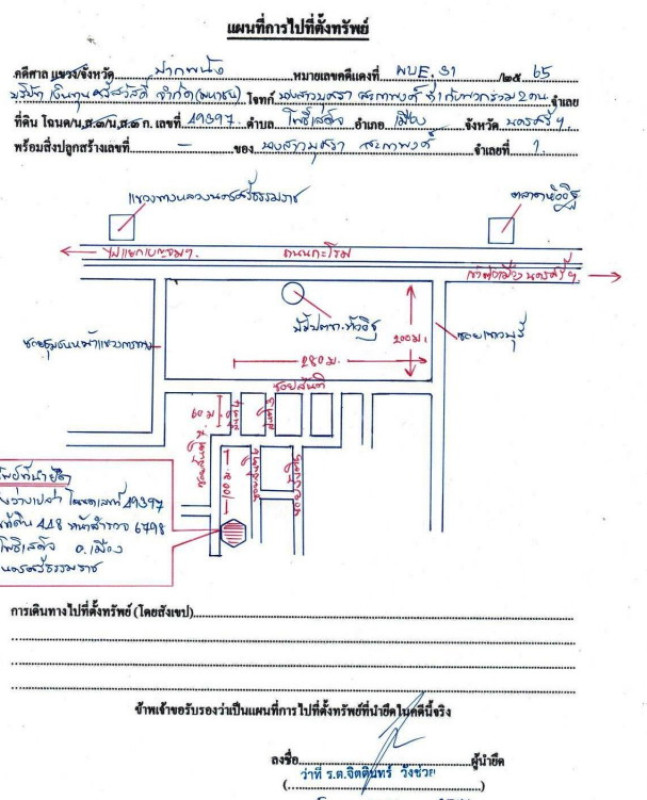 แผนที่การไปที่ตั้งทรัพย์
คดีศาล แขวง/จังหวัด ปากพนัง หมายเลขคดีแดงที่ ผบE.31 /๒๕ 65
บริษัท เงินทุน ศรีสวัสดิ์ จำกัด (มหาชน) โจทก์ นางสาวนุสรา ที่ 1 กับพวกรวม 2 คน จำเลย
ที่ดิน โฉนด/น.ส.๓/น.ส.๓ ก. เลขที่ 49397 ตำบล โพธิ์เสด็จ อำเภอ เมือง จังหวัด นครศรีฯ
พร้อมสิ่งปลูกสร้างเลขที่ - ของ นางสาวนุสรา จำเลยที่ 1
แขวงทางหลวงนครศรีธรรมราช
ตลาดหัวอิฐ
ไปแยกเบญจมฯ
ถนนกะโรม
เข้าตัวเมืองนครศรีฯ
ปั๊มปตท.หัวอิฐ
200 ม.
280 ม.
ซอยสันติ
60 ม.
100 ม.
ทรัพย์ที่นำยึด
ที่ดินว่างเปล่า โฉนดเลขที่ 49397
เลขที่ดิน 448 หน้าสำรวจ 6798
ต.โพธิ์เสด็จ อ.เมือง
จ.นครศรีธรรมราช
การเดินทางไปที่ตั้งทรัพย์ (โดยสังเขป)
ข้าพเจ้าขอรับรองว่าเป็นแผนที่การไปที่ตั้งทรัพย์ที่นำยึดในคดีนี้จริง
ลงชื่อ ผู้นำยึด
ว่าที่ ร.ต.จิตติินทร์ วังช่วย